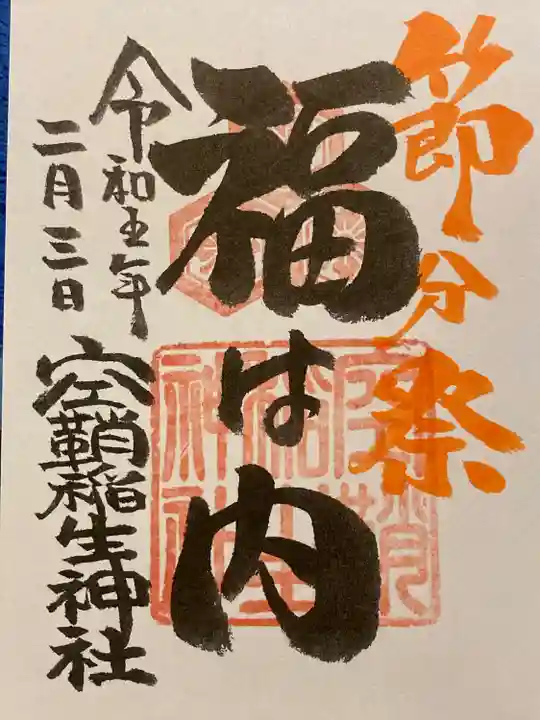 節分祭
福は内
令和五年
二月三日
空鞘稲生神社